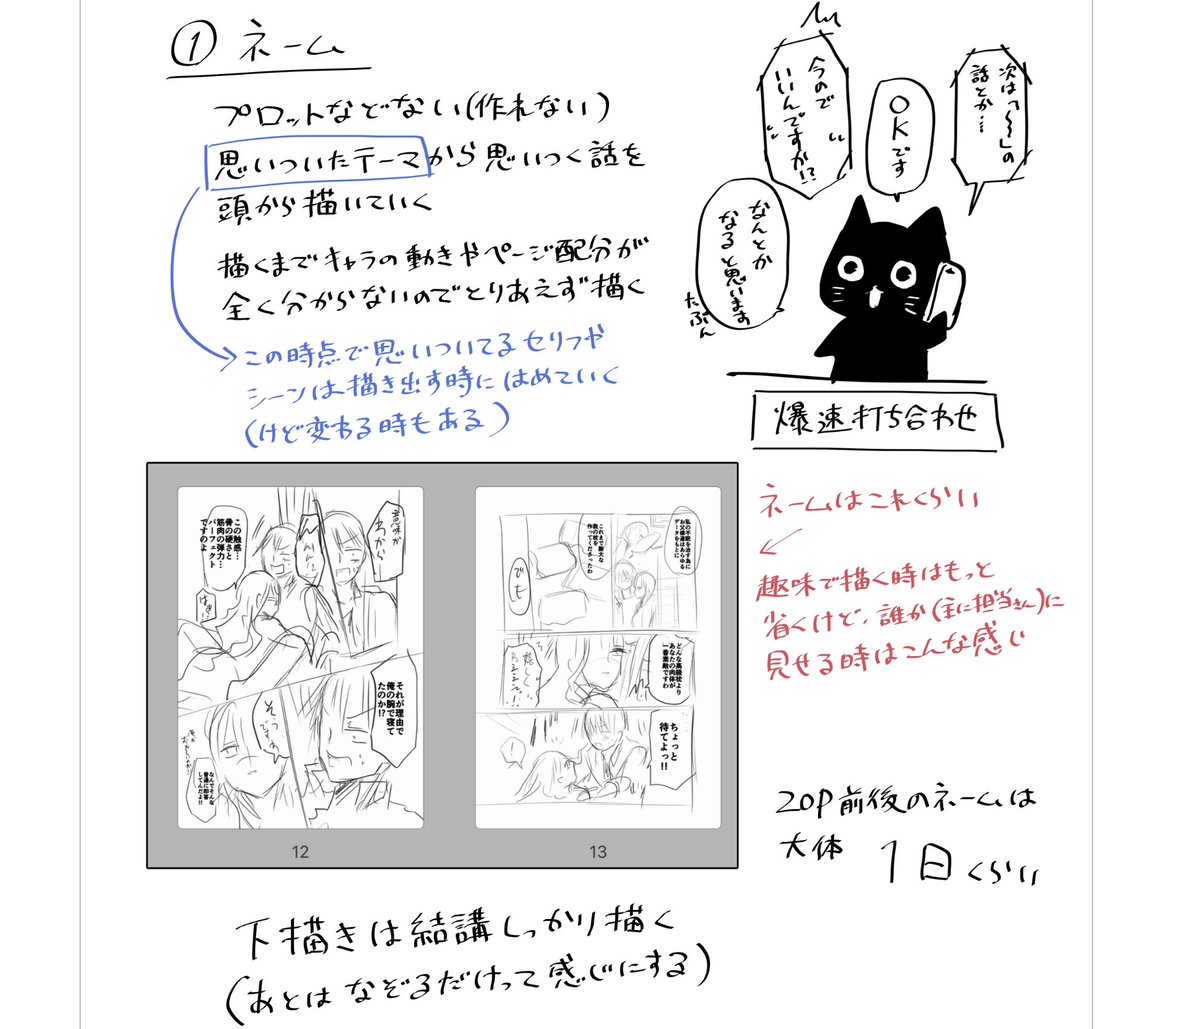 ① ネーム
プロットなどない(作れない)
思いついたテーマから思いつく話を
頭から描いていく
描くまでキャラの動きやページ配分が
全く分からないのでとりあえず描く
この時点で思いついてるセリフや
シーンは描き出す時にはめていく
(けど変わる時もある)
次は「〜」の
話とか…
OKです
今ので
いいんですか!?
なんとか
なると思います
たぶん
爆速打ち合わせ
ネームはこれくらい
趣味で描く時はもっと
省くけど、誰か(主に担当さん)に
見せる時はこんな感じ
意味が
わからん
この触感…
骨の硬さと
筋肉の弾力…
パーフェクト
ですのよ
はぁ!?
それが理由で
俺の腕で寝て
たのか!?
そうですわ
なんでそんな
普通に即答
してんだよ!!
12
私の不眠を治す為に
お父様達はあらゆる
データをもとに
これまで膨大な
数の枕を
作ってくださったわ
でも
どんな高級枕より
あなたの肉体が
一番素敵ですわ
ちょっと
待てよっ!!
!
13
20P前後のネームは
大体 1日くらい
下描きは結講しっかり描く
(あとはなぞるだけって感じにする)